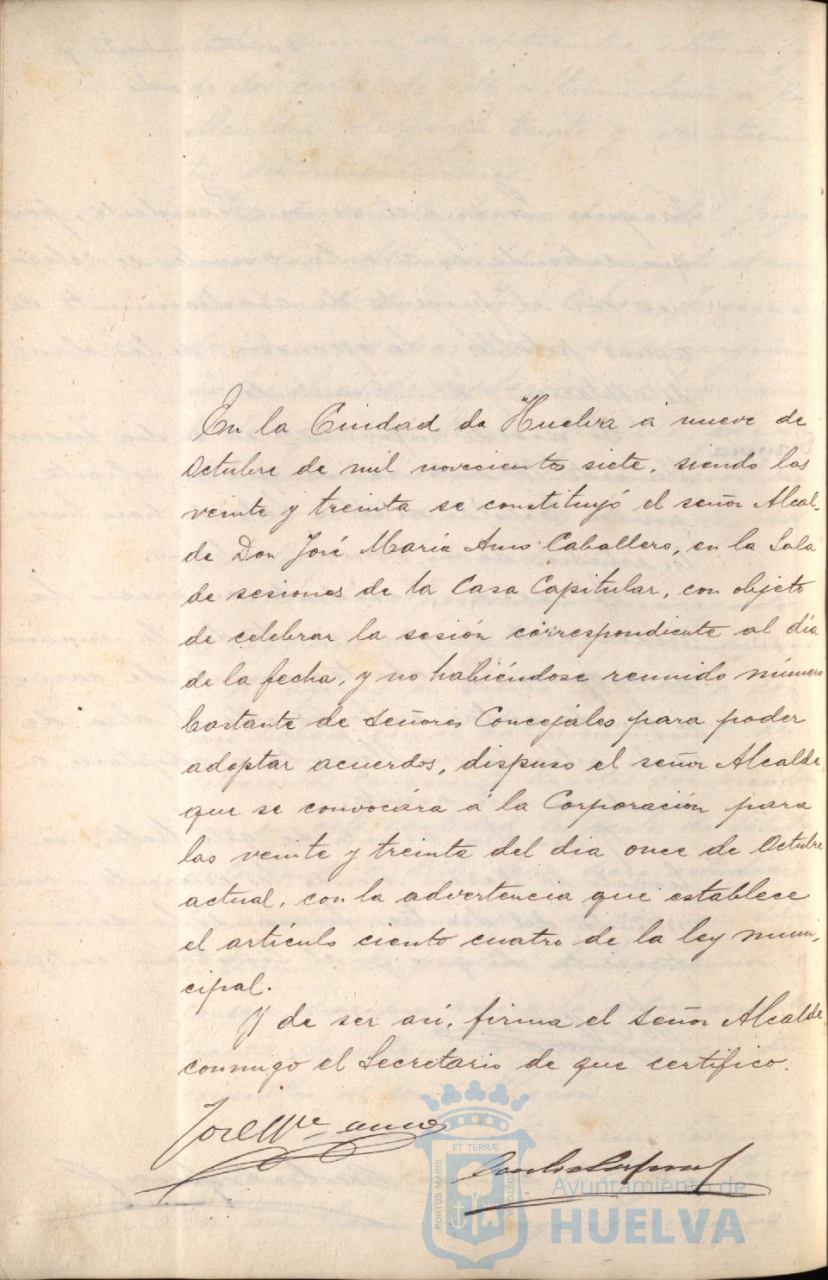 En la Ciudad de Huelva á nueve de
Octubre de mil novecientos siete, siendo las
veinte y treinta se constituyó el señor Alcal-
de Don José María Amo Caballero, en la Sala
de sesiones de la Casa Capitular, con objeto
de celebrar la sesión correspondiente al día
de la fecha, y no habiéndose reunido número
bastante de señores Concejales para poder
adoptar acuerdos, dispuso el señor Alcalde
que se convocára á la Corporación para
las veinte y treinta del dia once de Octubre
actual, con la advertencia que establece
el artículo ciento cuatro de la ley muni-
cipal.
Y de ser así, firma el señor Alcalde
conmigo el Secretario de que certifico.
José Mª Amo
ET TERRÆ
PORTUS MARIS
CUSTODIA
Ayuntamiento de
HUELVA